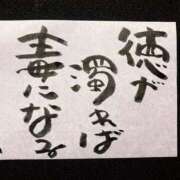 徳が
濁れば
毒になる